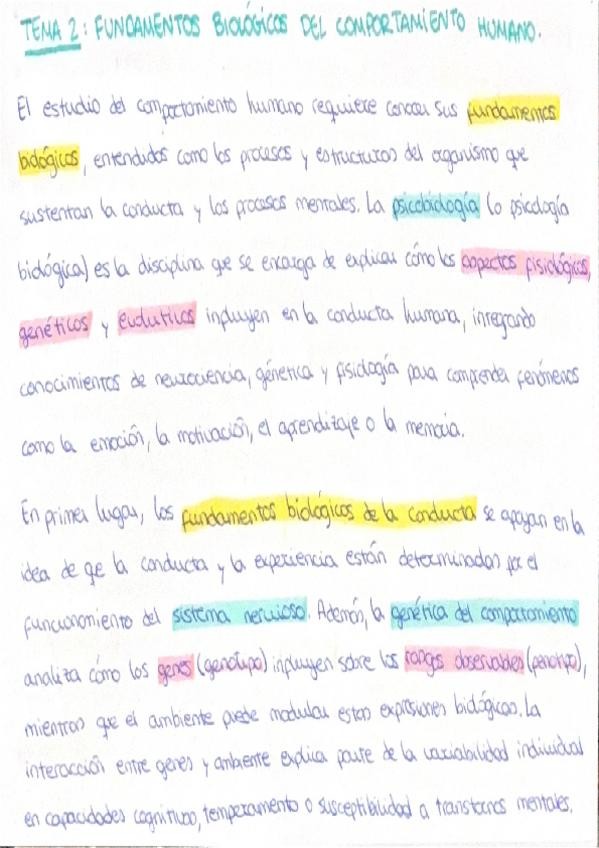 TEMA 2: FUNDAMENTOS BIOLÓGICOS DEL COMPORTAMIENTO HUMANO.
El estudio del comportamiento humano requiere conocer sus fundamentos
biológicos, entendidos como los procesos y estructuras del organismo que
sustentan la conducta y los procesos mentales. La psicobiología (o psicología
biológica) es la disciplina que se encarga de explicar cómo los aspectos fisiológicos,
genéticos y evolutivos influyen en la conducta humana, integrando
conocimientos de neurociencia, génetica y fisiología para comprender fenómenos
como la emoción, la motivación, el aprendizaje o la memoria.
En primer lugar, los fundamentos biológicos de la conducta se apoyan en la
idea de qe la conducta y la experiencia están determinadas por el
funcionamiento del sistema nervioso. Además, la genética del comportamiento
analiza cómo los genes (genotipo) influyen sobre los rasgos observables (fenotipo),
mientras que el ambiente puede modular estas expresiones biológicas. La
interacción entre genes y ambiente explica parte de la variabilidad individual
en capacidades cognitivas, temperamento o susceptibilidad a trastornos mentales.